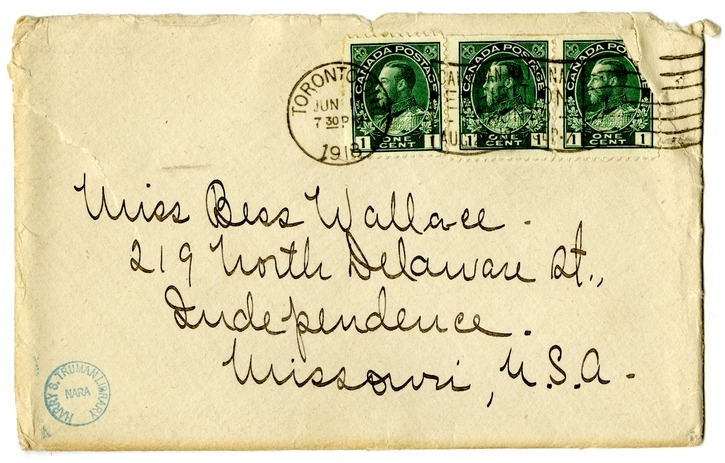 TORONTO
JUN
7 30 P
1918
CANADA POSTAGE
1 ONE CENT 1
CANADA POSTAGE
1 ONE CENT 1
CANADA POSTAGE
1 ONE CENT 1
Miss Bess Wallace.
219 North Delaware St.,
Independence.
Missouri, U.S.A.
HARRY S. TRUMAN LIBRARY
NARA